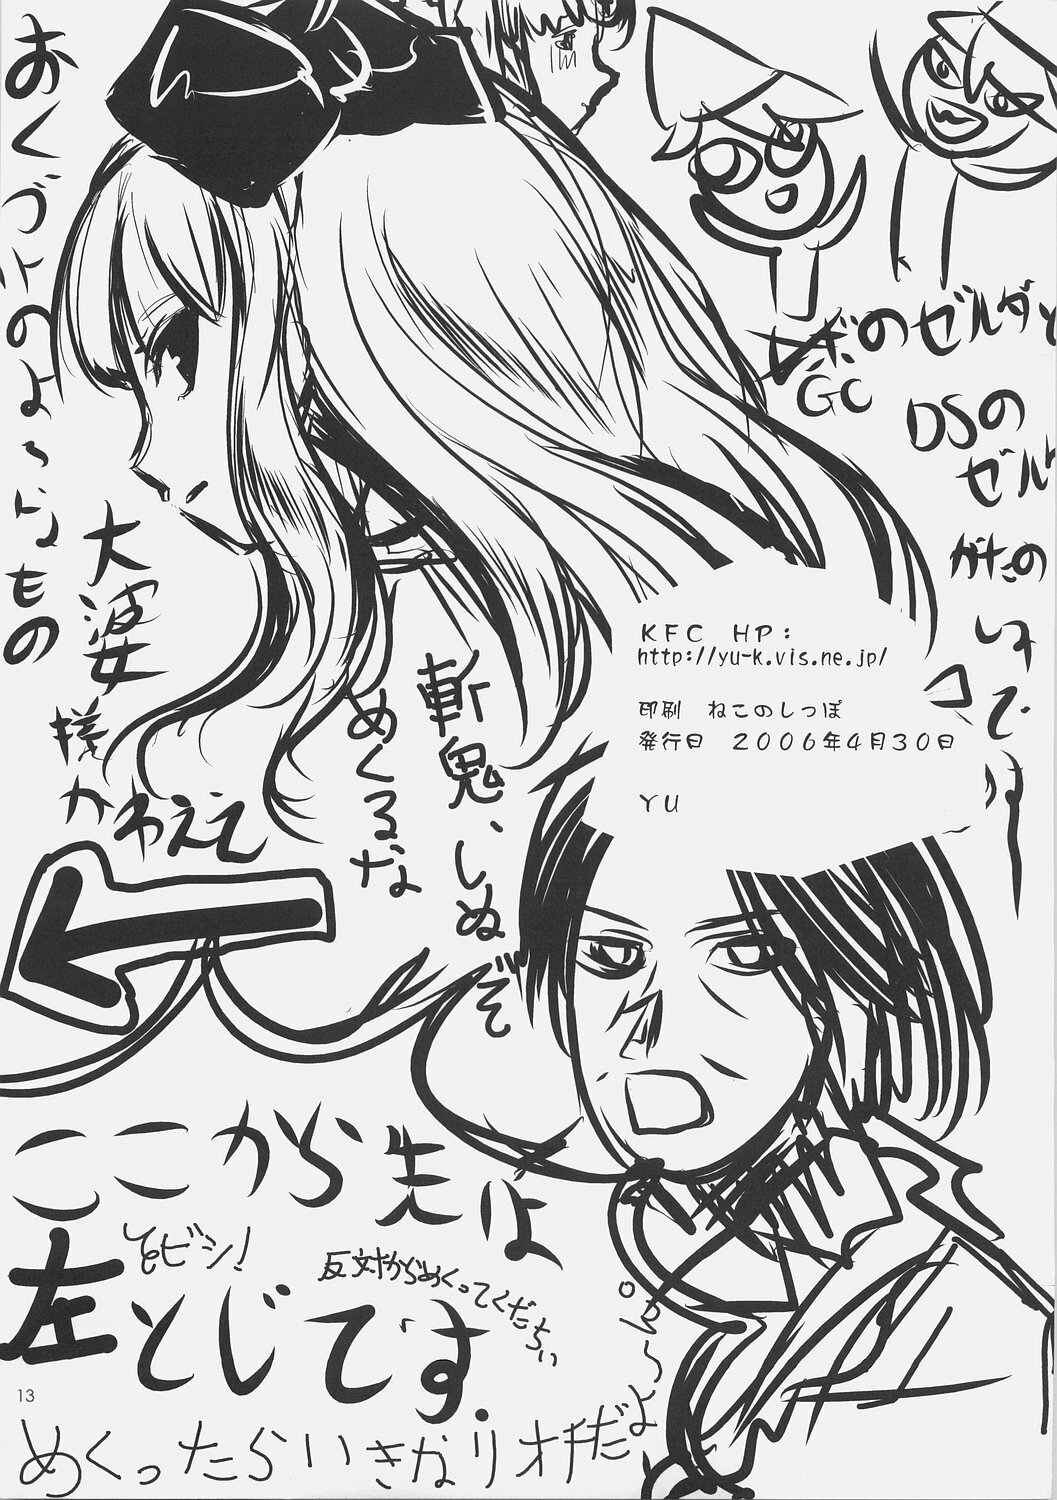 おくづけのよーなもの
大婆
様
かわええ
GCのゼルダと
DSの
ゼル
がたの
KFC HP:
http://yu-k.vis.ne.jp/
印刷 ねこのしっぽ
発行日 2006年4月30日
YU
斬鬼、しぬぞ
めくるな
ここから先は
左とじです.
ビシ!
反対からめくってくだちい
めくったらいきなりオチだよ
13